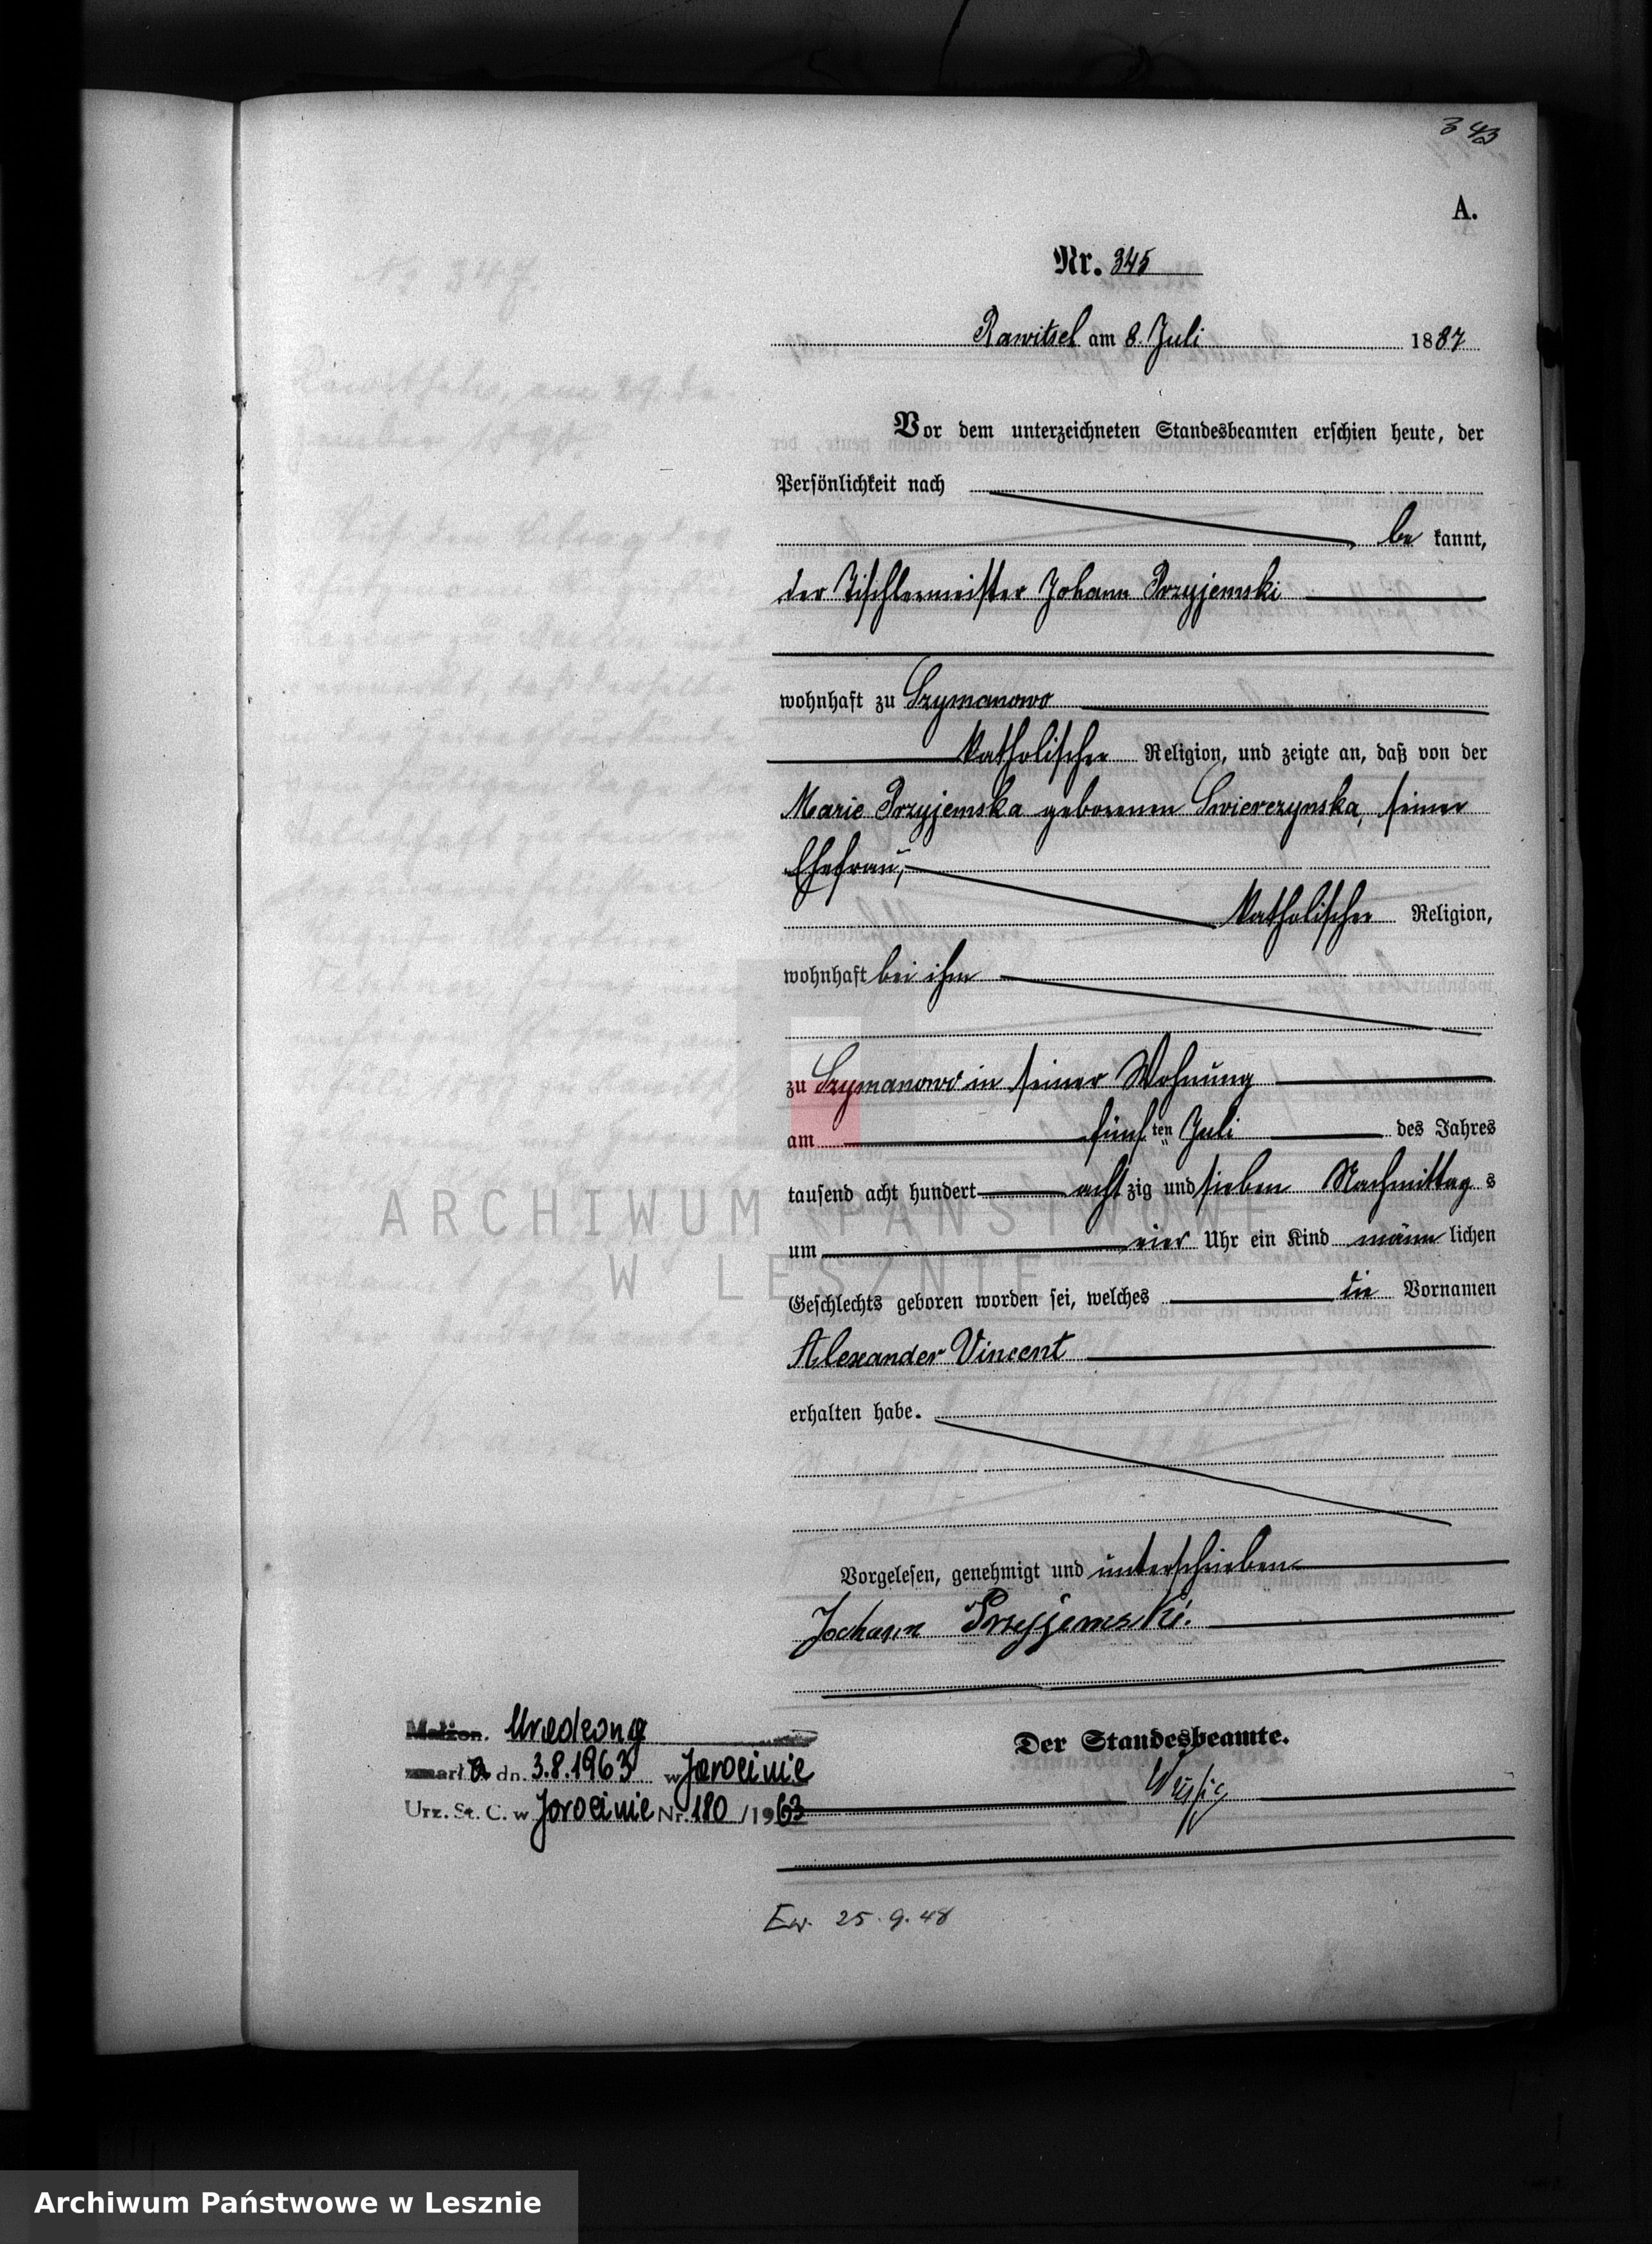 343
A.
Nr. 345
Rawitsch am 8. Juli 1887
Vor dem unterzeichneten Standesbeamten erschien heute, der
Persönlichkeit nach
be kannt,
der Tischlermeister Johann Przyjemski
wohnhaft zu Szymanowo
katholischer Religion, und zeigte an, daß von der
Marie Przyjemska geborenen Swierczynska, seiner
Ehefrau,
katholischer Religion,
wohnhaft bei ihm
zu Szymanowo in seiner Wohnung
am fünften Juli des Jahres
tausend acht hundert achtzig und sieben Nachmittags
um vier Uhr ein Kind männlichen
Geschlechts geboren worden sei, welches die Vornamen
Alexander Vincent
erhalten habe.
Vorgelesen, genehmigt und unterschrieben
Johann Przyjemski.
Der Standesbeamte.
Małżon. Urodzony
zmarł dn. 3.8.1963 w Jarocinie
Urz. St. C. w Jarocinie Nr. 180/1963
Ew. 25.9.48
ARCHIWUM PAŃSTWOWE
W LESZNIE
Archiwum Państwowe w Lesznie